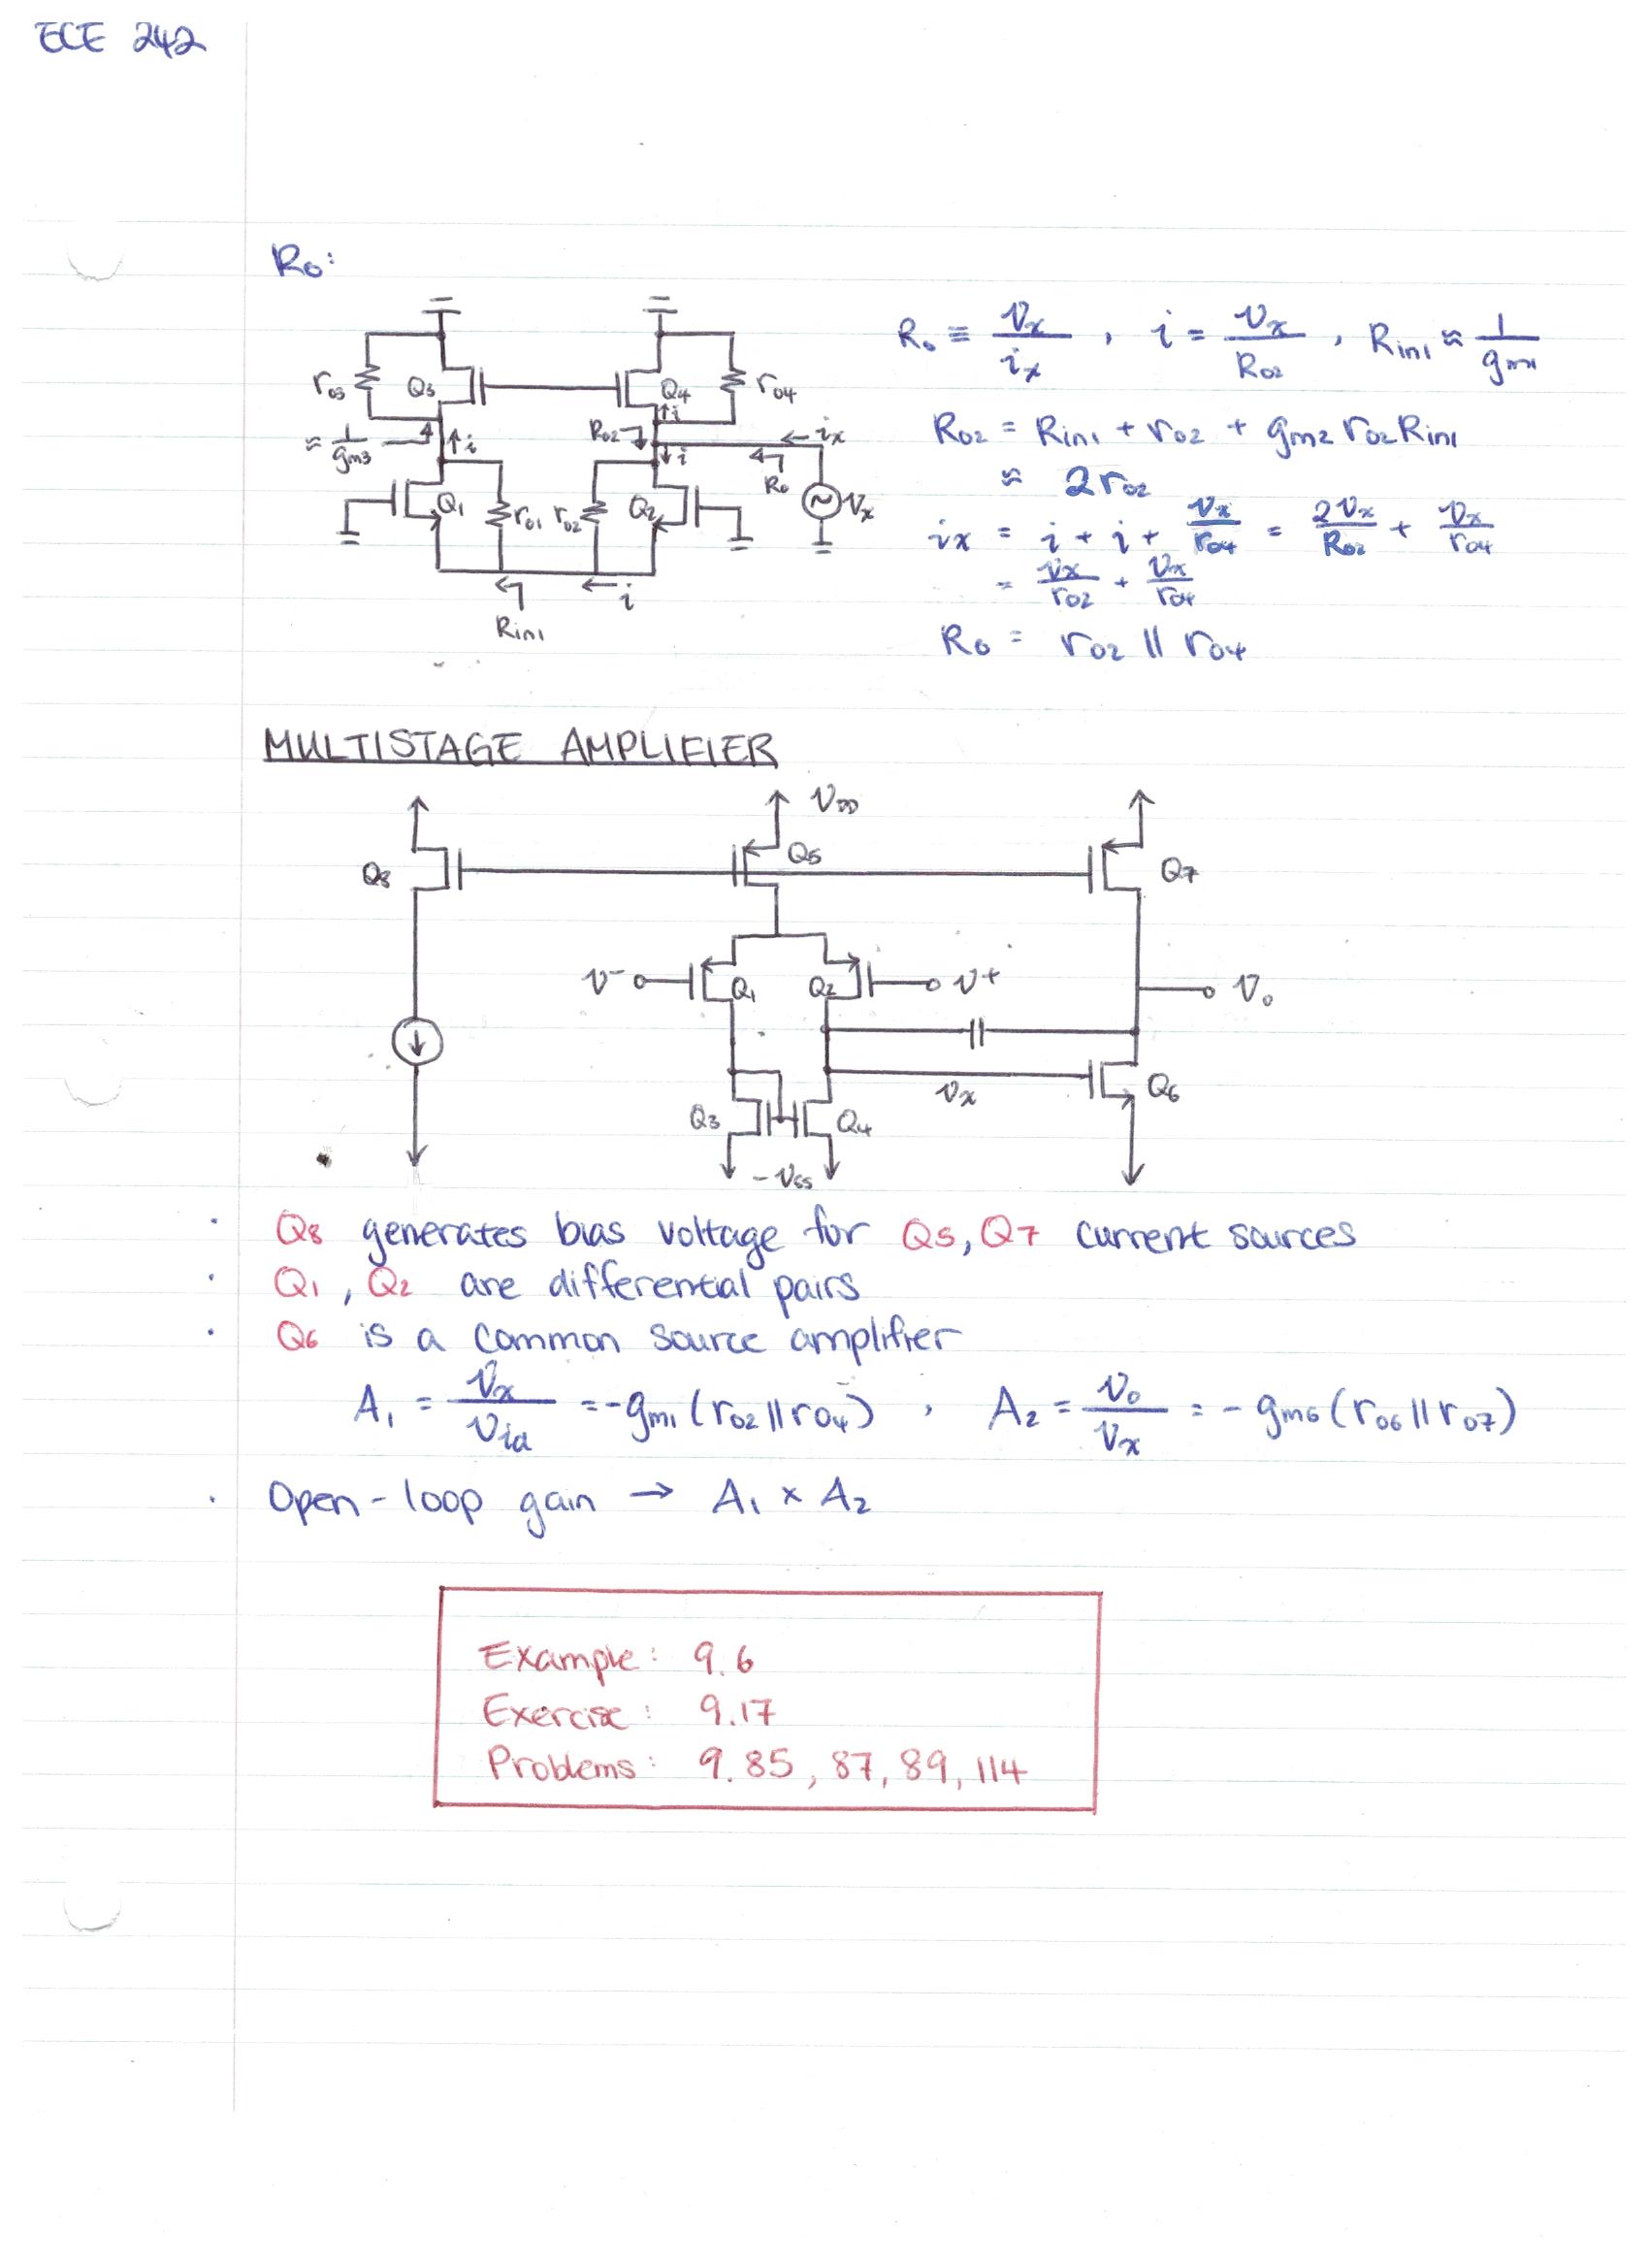 ECE 242
Ro:
Ro ≡ vx/ix , i = vx/Ro2 , Rin1 ≈ 1/gm1
ro3 Q3 Q4 ro4
≈ 1/gm3 i Ro2 i ix
Ro2 = Rin1 + ro2 + gm2 ro2 Rin1
i Ro
≈ 2ro2
Q1 ro1 ro2 Q2 Vx
ix = i + i + vx/ro4 = 2vx/Ro2 + vx/ro4
= vx/ro2 + vx/ro4
i
Rin1
Ro = ro2 || ro4
MULTISTAGE AMPLIFIER
VDD
Q8 Q5 Q7
v- Q1 Q2 v+ Vo
vx Q6
Q3 Q4
-Vss
· Q8 generates bias voltage for Q5, Q7 current sources
· Q1, Q2 are differential pairs
· Q6 is a common source amplifier
A1 = vx/vid = -gm1 (ro2 || ro4) , A2 = vo/vx = - gm6 (ro6 || ro7)
· Open-loop gain → A1 × A2
Example: 9.6
Exercise: 9.17
Problems: 9.85, 87, 89, 114